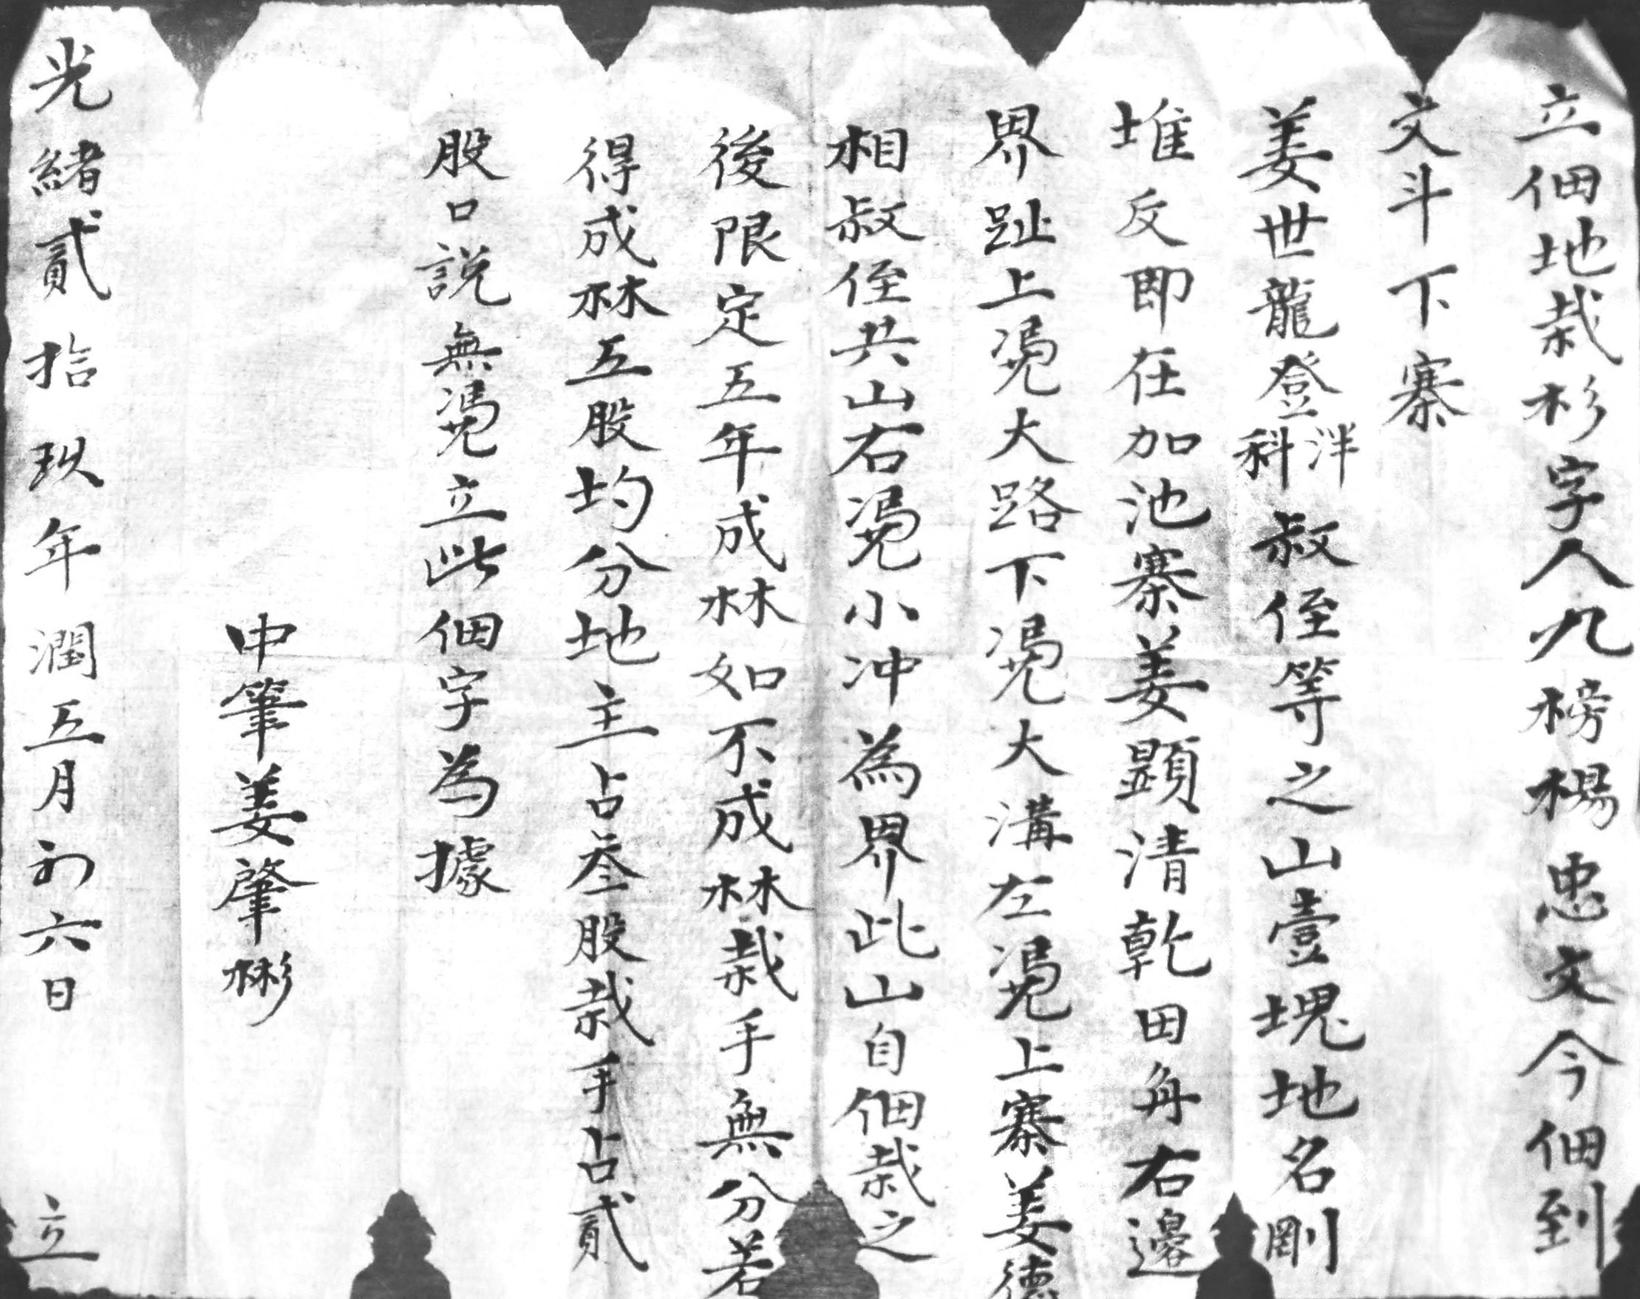 立佃地栽杉字人九榜楊忠文今佃到
文斗下寨
姜世龍登泮科叔侄等之山壹塊地名剛
堆反即在加池寨姜顕清乾田舟右邊
界趾上凴大路下凴大溝左凴上寨姜德
相叔侄共山右凴小冲為界此山自佃栽之
後限定五年成林如不成林栽手無分若
得成林五股均分地主占叁股栽手占貳
股口説無凴立此佃字為據
中筆姜肇彬
光緒貳拾玖年潤五月初六日 立